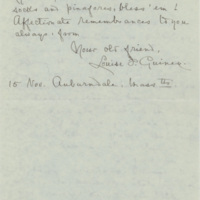 socks and pinafores, bless 'em!
Affectionate remembrances to you
always, from
Your old friend,
Louise I. Guiney.
15 Nov. Auburndale, Mass